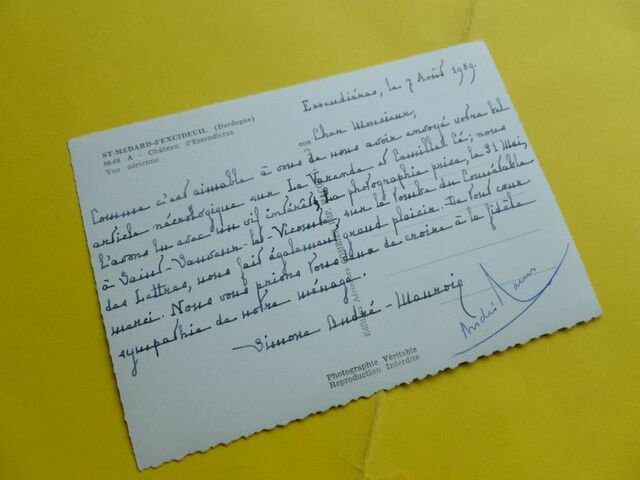 ST-MEDARD-d'EXCIDEUIL (Dordogne)
A - Château d'Essendiéras
Vue aérienne
Essendiéras, le 7 Août 1959.
Cher Monsieur,
Comme c'est aimable à vous de nous avoir envoyé votre bel
article nécrologique sur La Varende et Camille Cé; nous
l'avons lu avec un vif intérêt; la photographie prise, le 31 Mai,
à Saint-Sauveur-le-Vicomte, sur la tombe du Connétable
des Lettres, nous fait également grand plaisir. De tout cœur
merci. Nous vous prions tous deux de croire à la fidèle
sympathie de notre ménage.
Simone André-Maurois
André Maurois
Photographie Véritable
Reproduction Interdite